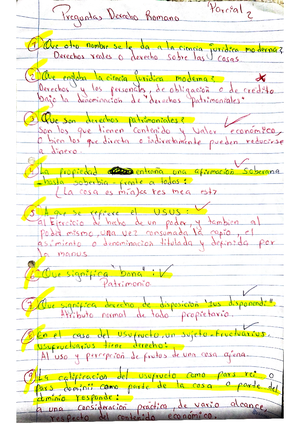 Preguntas Derecho Romano
Parcial 2
1 Que otro nombre se le da a la ciencia juridica moderna?
Derechos reales o derecho sobre las cosas.
2 Que engloba la ciencia juridica moderna?
Derechos y los personales, de obligación o de credito
bajo la denominacion de "derechos patrimoniales"
3 Que son derechos patrimoniales?
Son los que tienen contenido y valor economico,
o bien los que directa e indirectamente pueden reducirse
a dinero
4 La propiedad entraña una afirmación soberana
hasta soberbia frente a todos:
(La cosa es mia) res mea est
5 A que se refiere el USUS:
Al Ejercicio de hecho de un poder, y tambien al
poder mismo, una vez consumada la capio, el
asimiento o denominacion titulada y definida por
la manus
6 Que significa "bona":
Patrimonio
7 Que significa derecho de disposicion "ius disponendi":
Atributo normal de todo propietario.
8 En el caso del Usufructo, un sujeto-fructuarius,
Usufructuarius tiene derecho:
Al uso y percepcion de frutos de una cosa ajena.
9 La calificacion del usufructo como pars rei o
pars dominii como parte de la cosa o parte del
dominio responde:
a una consideracion practica, de vario alcance,
respecto del contenido economico.